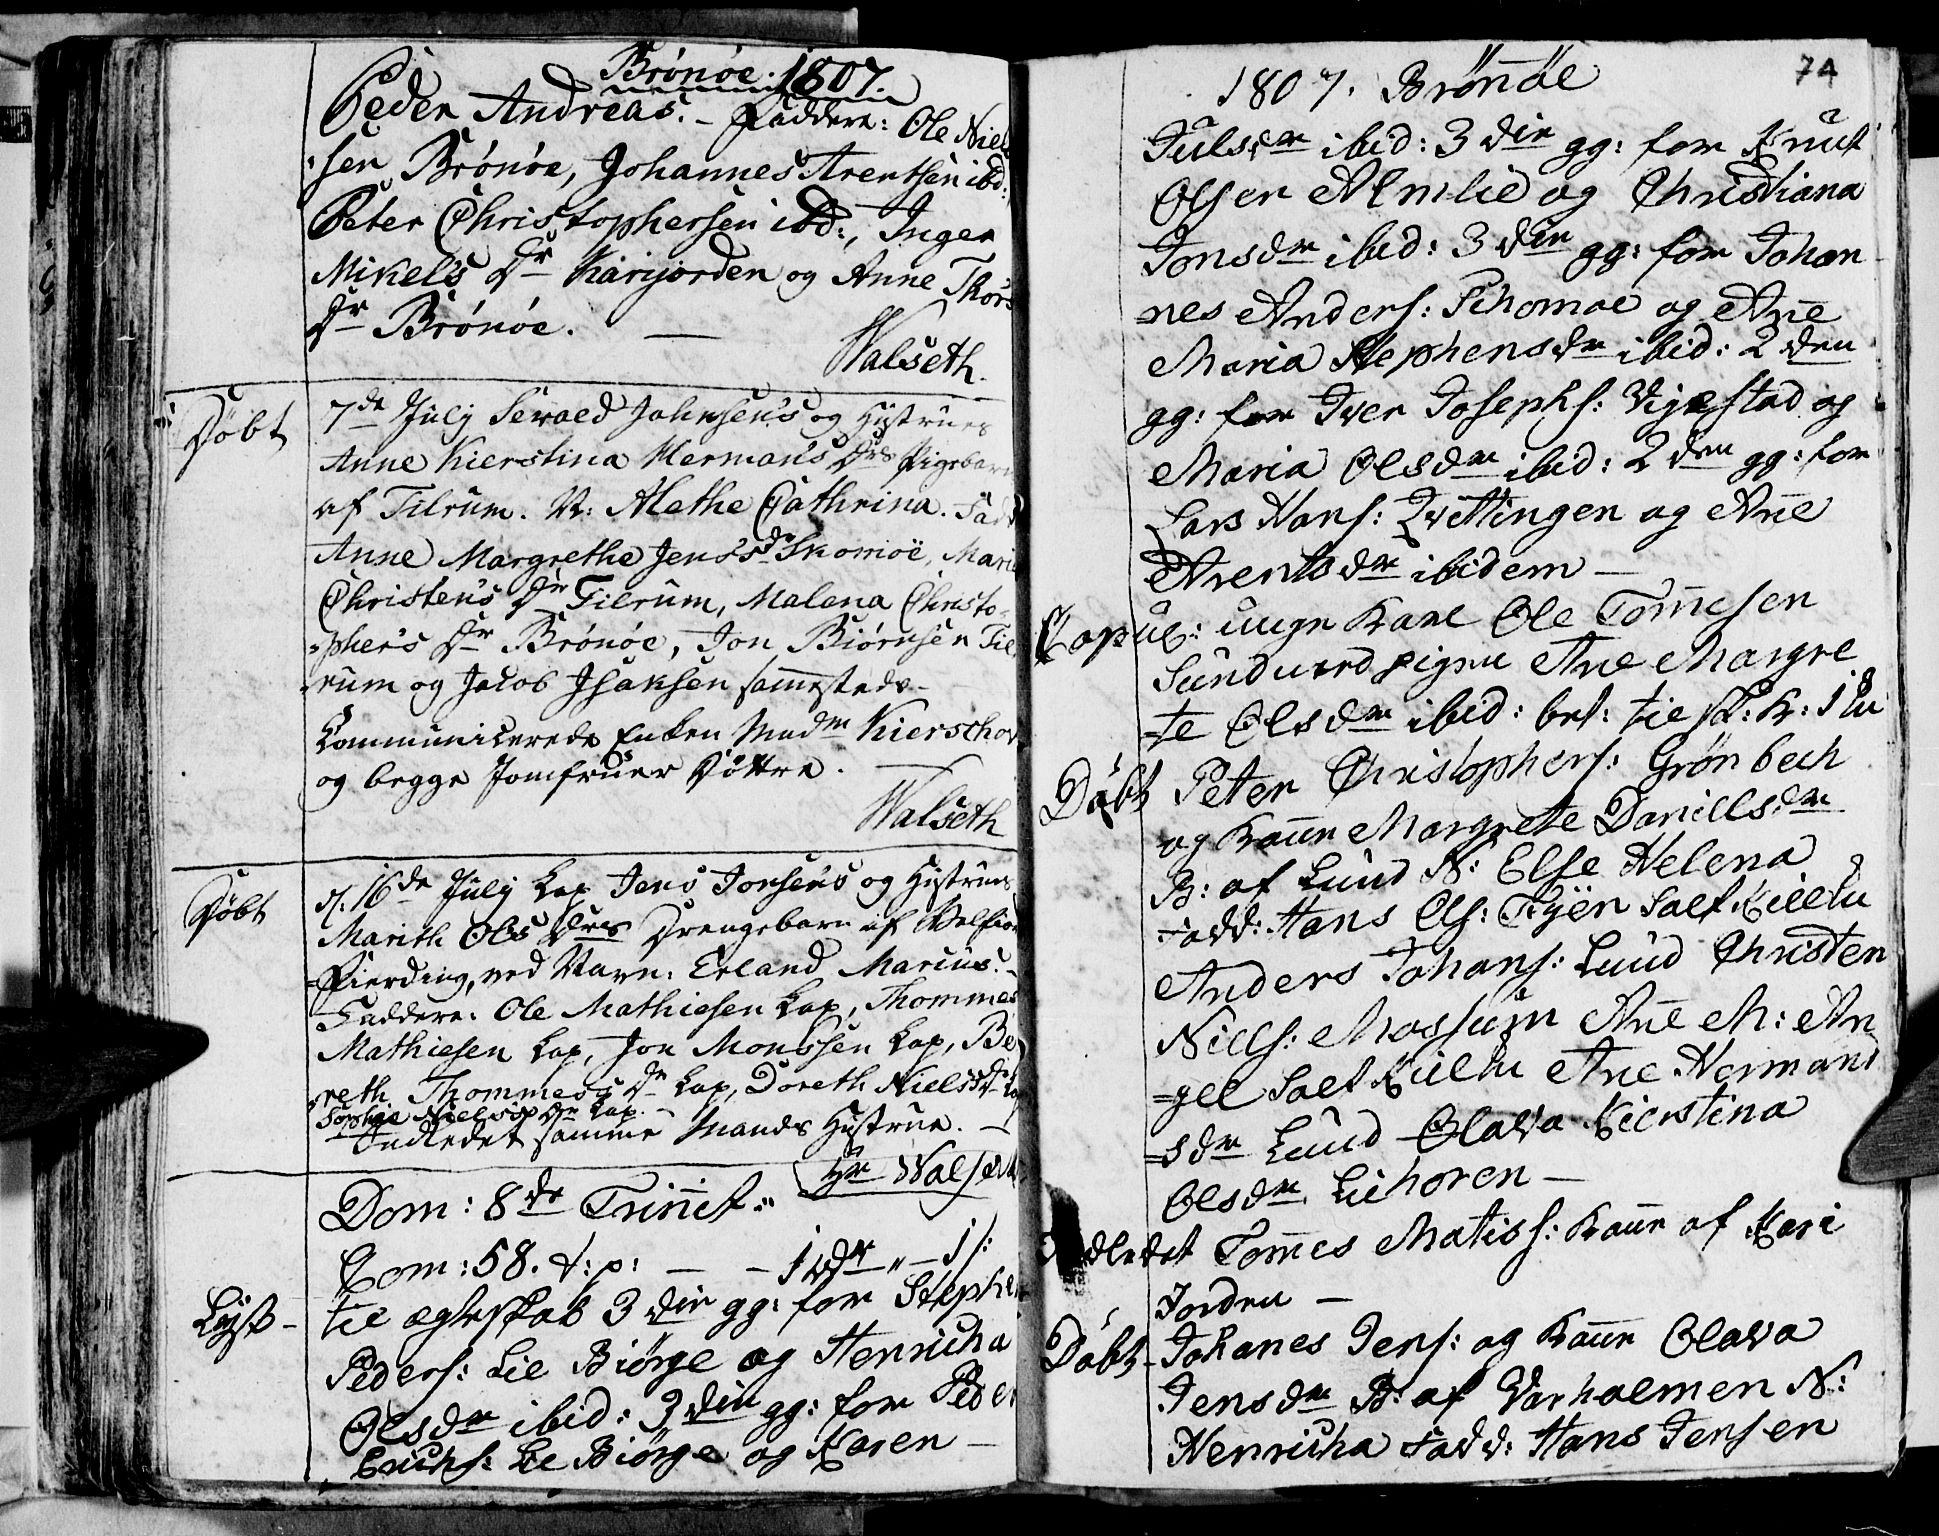 Brónóe. 1807.
Peder Andreas. - Faddere: Ole Niel
sen Brónóe, Johannes Arentsen ibd:
Peter Christophersen ibd:, Inger
Mikels Dr Karijorden og Anne Thors
Dr Brónóe. —
Walseth.
Döbt
7de July Sevald Johnsen's og Hustrues
Anne Kierstina Herman's Drs Pigebarn
af Tilrum. N: Alethe Cathrina. Fadd
Anne Margrethe Jens's dr Skomoë, Mari
Christen's Dr Tilrum, Malena Christo-
pher's Dr Brónóe, Jon Biörnsen Til
rum og Jacob Isaksen sammesteds-
Kommunicerede Enken Madm Kierschow
og begge Jomfruer Döttre. —
Walseth
Döbt
d. 16de July Lap Jens Jonsen's og Hustrues
Marith Ols Drs Drengebarn af Velfior
Fierding, ved Navn: Erland Marius. -
Faddere: Ole Mathiesen Lap, Thommes
Mathiesen Lap, Jon Monssen Lap, Be
reth Thommes's Dr Lap, Doreth Niels's Dr Lap
Sophie Niels's Dr Lap. -
Indledet samme Mands Hustrue. -
Hr Walseth
Dom: 8de Trinit:
Com: 58. t: p: — - 1 vdr „ - 1 s:
Lyst -
til ægteskab 3 die gg: for Stephe
Peders: Lie Biörge og Henricha
Olsdr ibid: 3 die gg: for Peder
Erichs: Lie Biörge og Karen —
1807. Brönöe
74
Julsdr ibid: 3 die gg: for Knut
Olsen Almlie og Christiana
Jonsdr ibid: 3 die gg: for Johan
nes Anders: Tihomoe og Ane
Maria Stephensdr ibid: 2 den
gg: for Iver Josephs: Vigestad og
Maria Olsdr ibid: 2 den gg: for
Lars Hans: Qvittingen og Ane
Arentsdr ibidem —
Copul: unge Karl Ole Tommesen
Sundu og pigen Ane Margre
te Olsdr ibid: bet: til sk: K: 1 18
Döbt Peter Christophers: Grönbech
og Kaune Margrete Daniellsdr
B: af Lund N: Else Helena
Fadd: Hans Ols: Tyen Salt
Anders Johans: Lund Christen
Niells: Mossum Ane M: An
gel Salt Ane Hermans
sdr Lund Olava Kierstina
Olsdr Lihoren —
Indledet Tommes Matiss: Kaune af Kari
Jorden —
Döbt - Johanes Jens: og Kaune Olava
Jensdr B: af Varholmen N:
Henricha Fadd: Hans Jensen